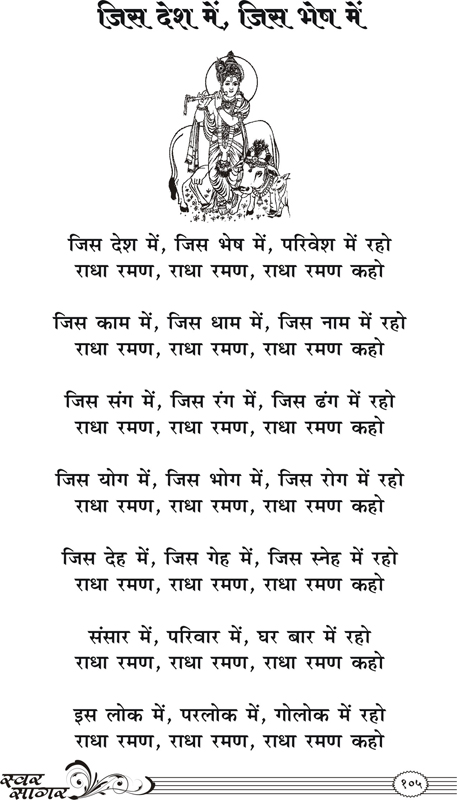 जिस देश में, जिस भेष में
जिस देश में, जिस भेष में, परिवेश में रहो
राधा रमण, राधा रमण, राधा रमण कहो
जिस काम में, जिस धाम में, जिस नाम में रहो
राधा रमण, राधा रमण, राधा रमण कहो
जिस संग में, जिस रंग में, जिस ढंग में रहो
राधा रमण, राधा रमण, राधा रमण कहो
जिस योग में, जिस भोग में, जिस रोग में रहो
राधा रमण, राधा रमण, राधा रमण कहो
जिस देह में, जिस गेह में, जिस स्नेह में रहो
राधा रमण, राधा रमण, राधा रमण कहो
संसार में, परिवार में, घर बार में रहो
राधा रमण, राधा रमण, राधा रमण कहो
इस लोक में, परलोक में, गोलोक में रहो
राधा रमण, राधा रमण, राधा रमण कहो
स्वर
सागर
१०५